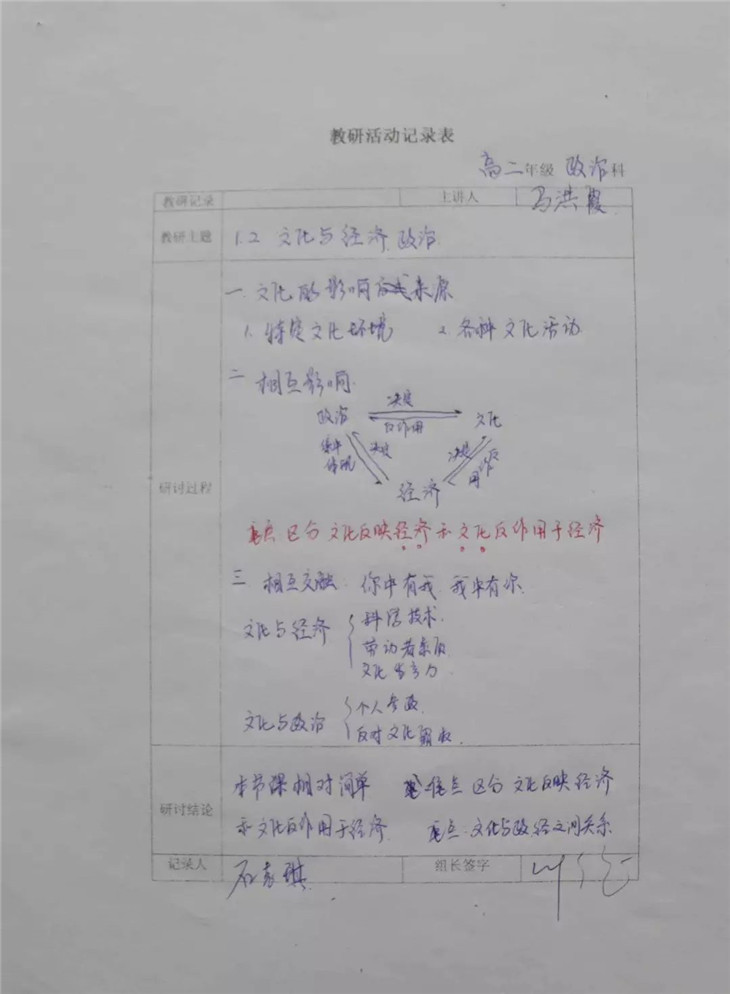 教研活动记录表
高二年级 政治科
教研记录 主讲人 马洪霞
教研主题 1.2 文化与经济、政治
一、文化的影响 来源
1. 特定文化环境 2. 各种文化活动
二 相互影响
政治 决定 文化
反作用
集中体现 决定 决定 反作用
经济
研讨过程
重点 区分 文化反映经济 和 文化反作用于经济
三 相互交融 你中有我 我中有你
文化与经济 科学技术
劳动者素质
文化生产力
文化与政治 个人参政
反对文化霸权
本节课相对简单 难点 区分 文化反映经济
研讨结论
和文化反作用于经济 重点:文化与政经之间关系
记录人 组长签字